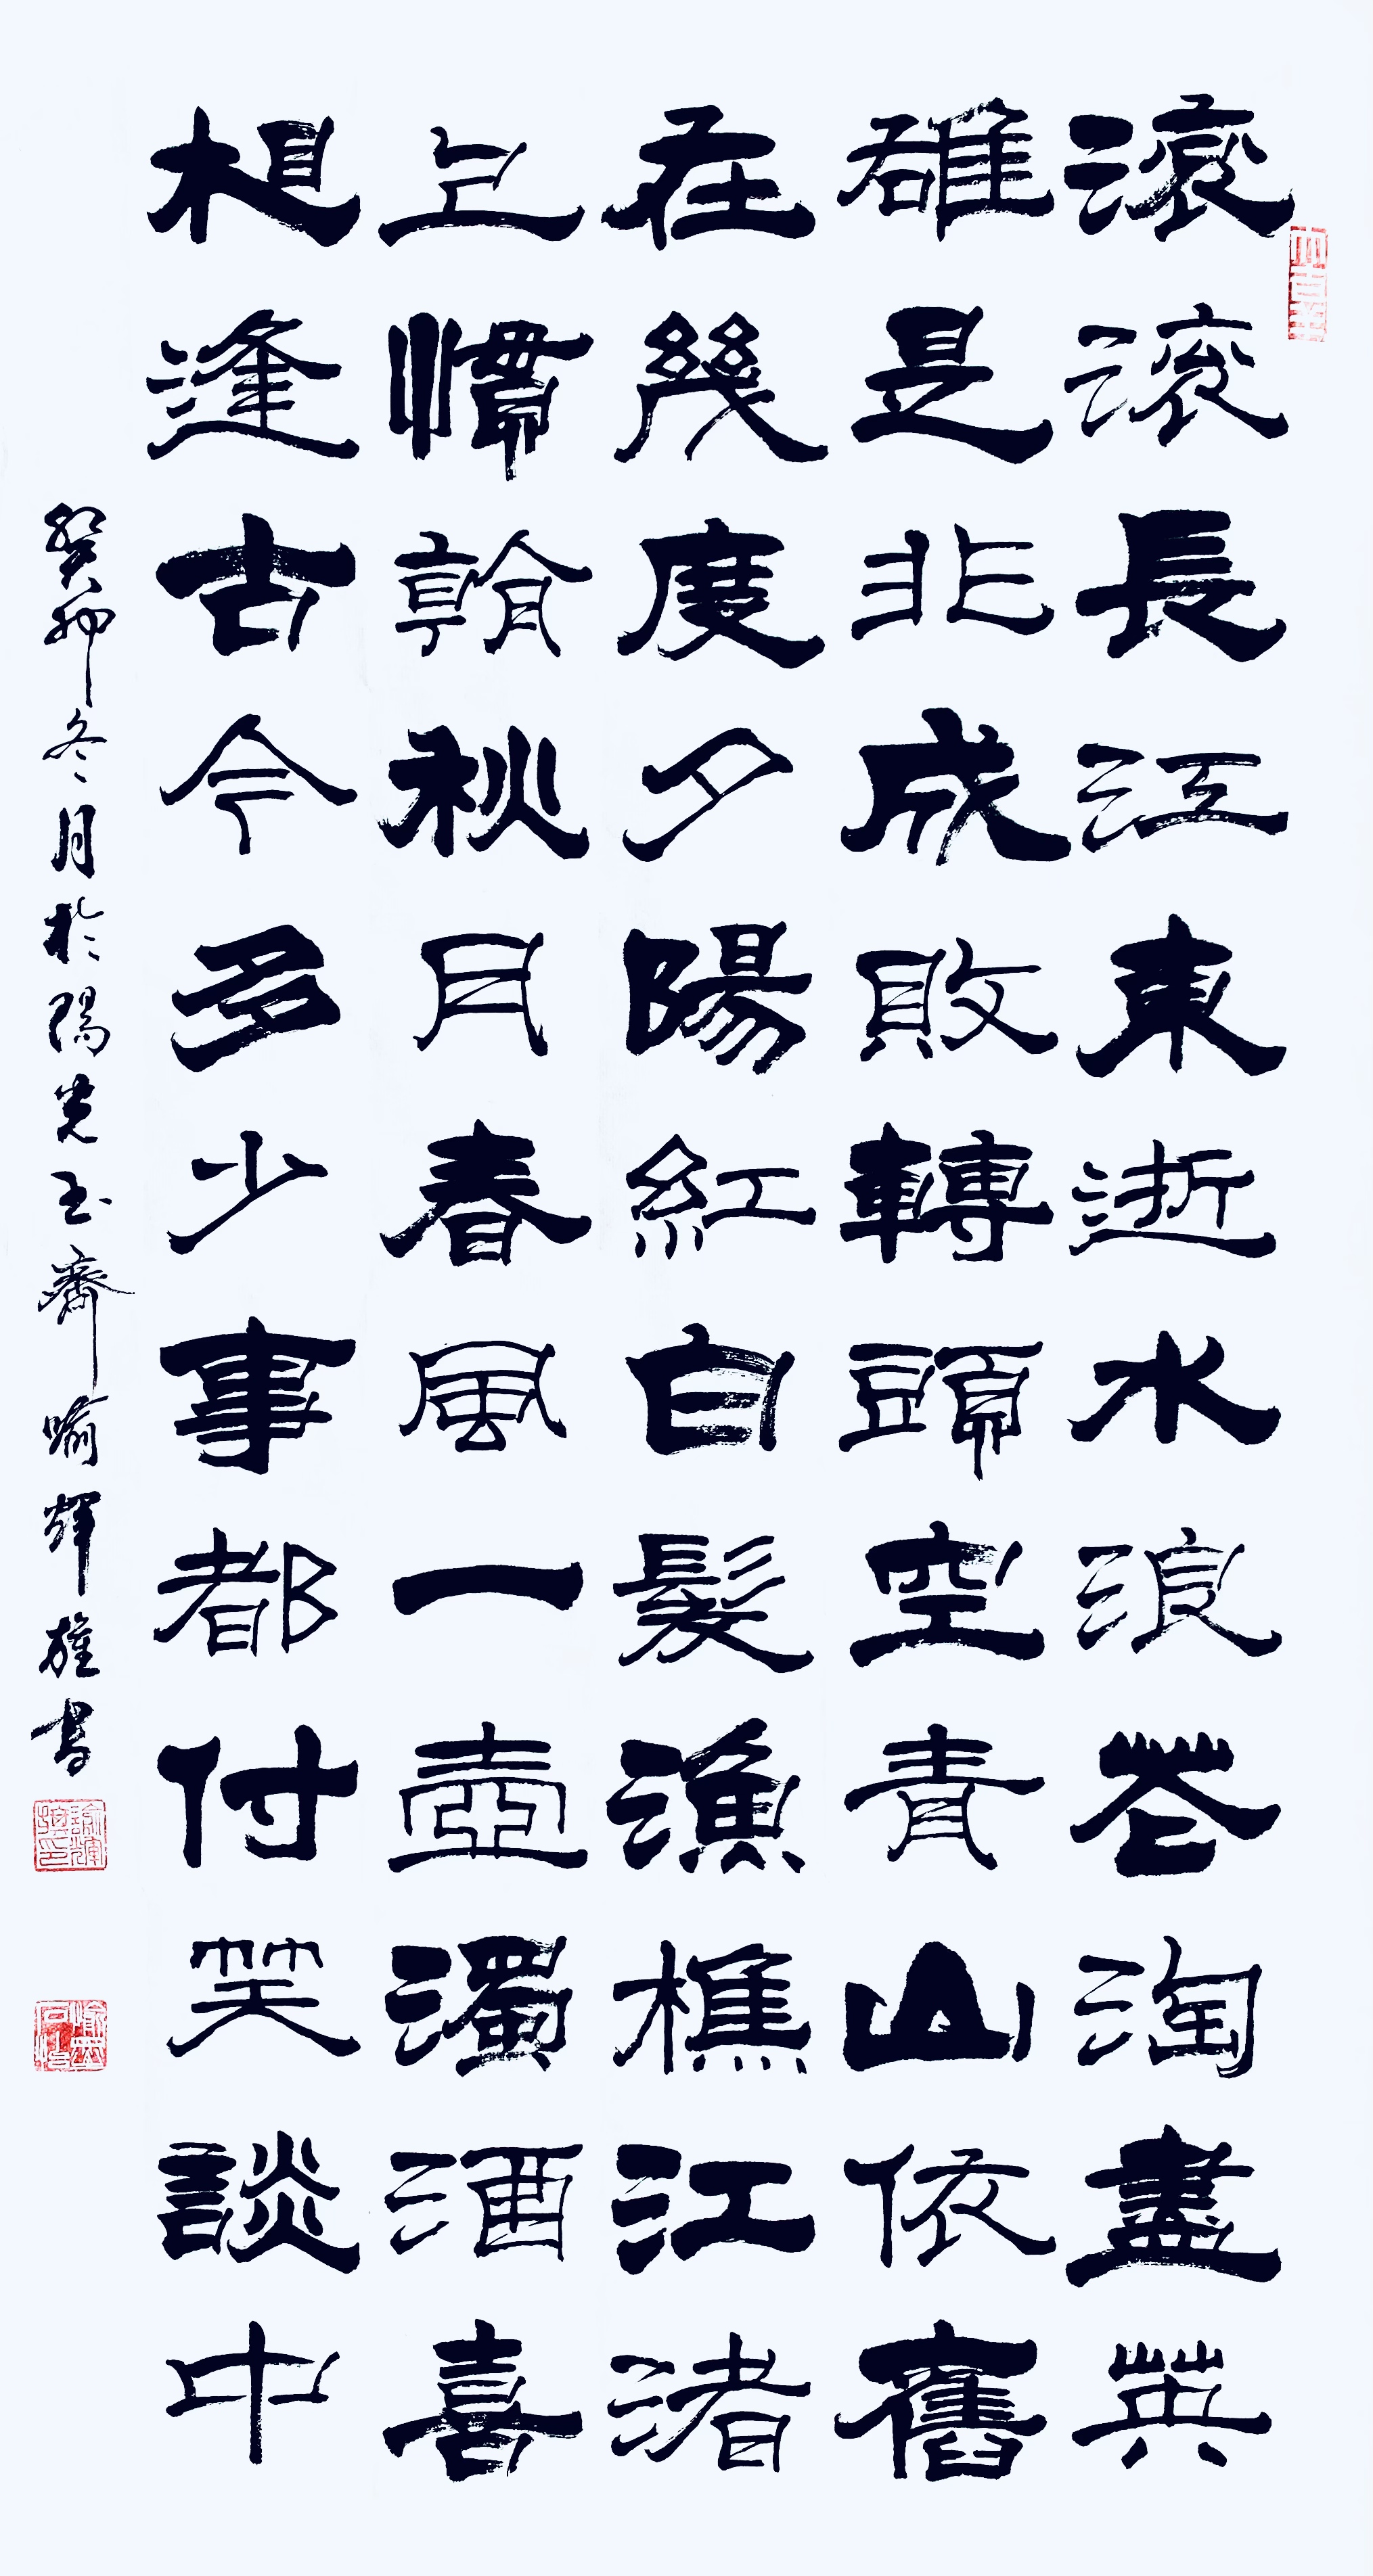 滚滚長江東逝水浪花淘盡英
雄是非成敗轉頭空青山依舊
在幾度夕陽紅白髮漁樵江渚
上慣看秋月春風一壺濁酒喜
相逢古今多少事都付笑談中
癸卯冬月於陽光玉齋喻輝雄書